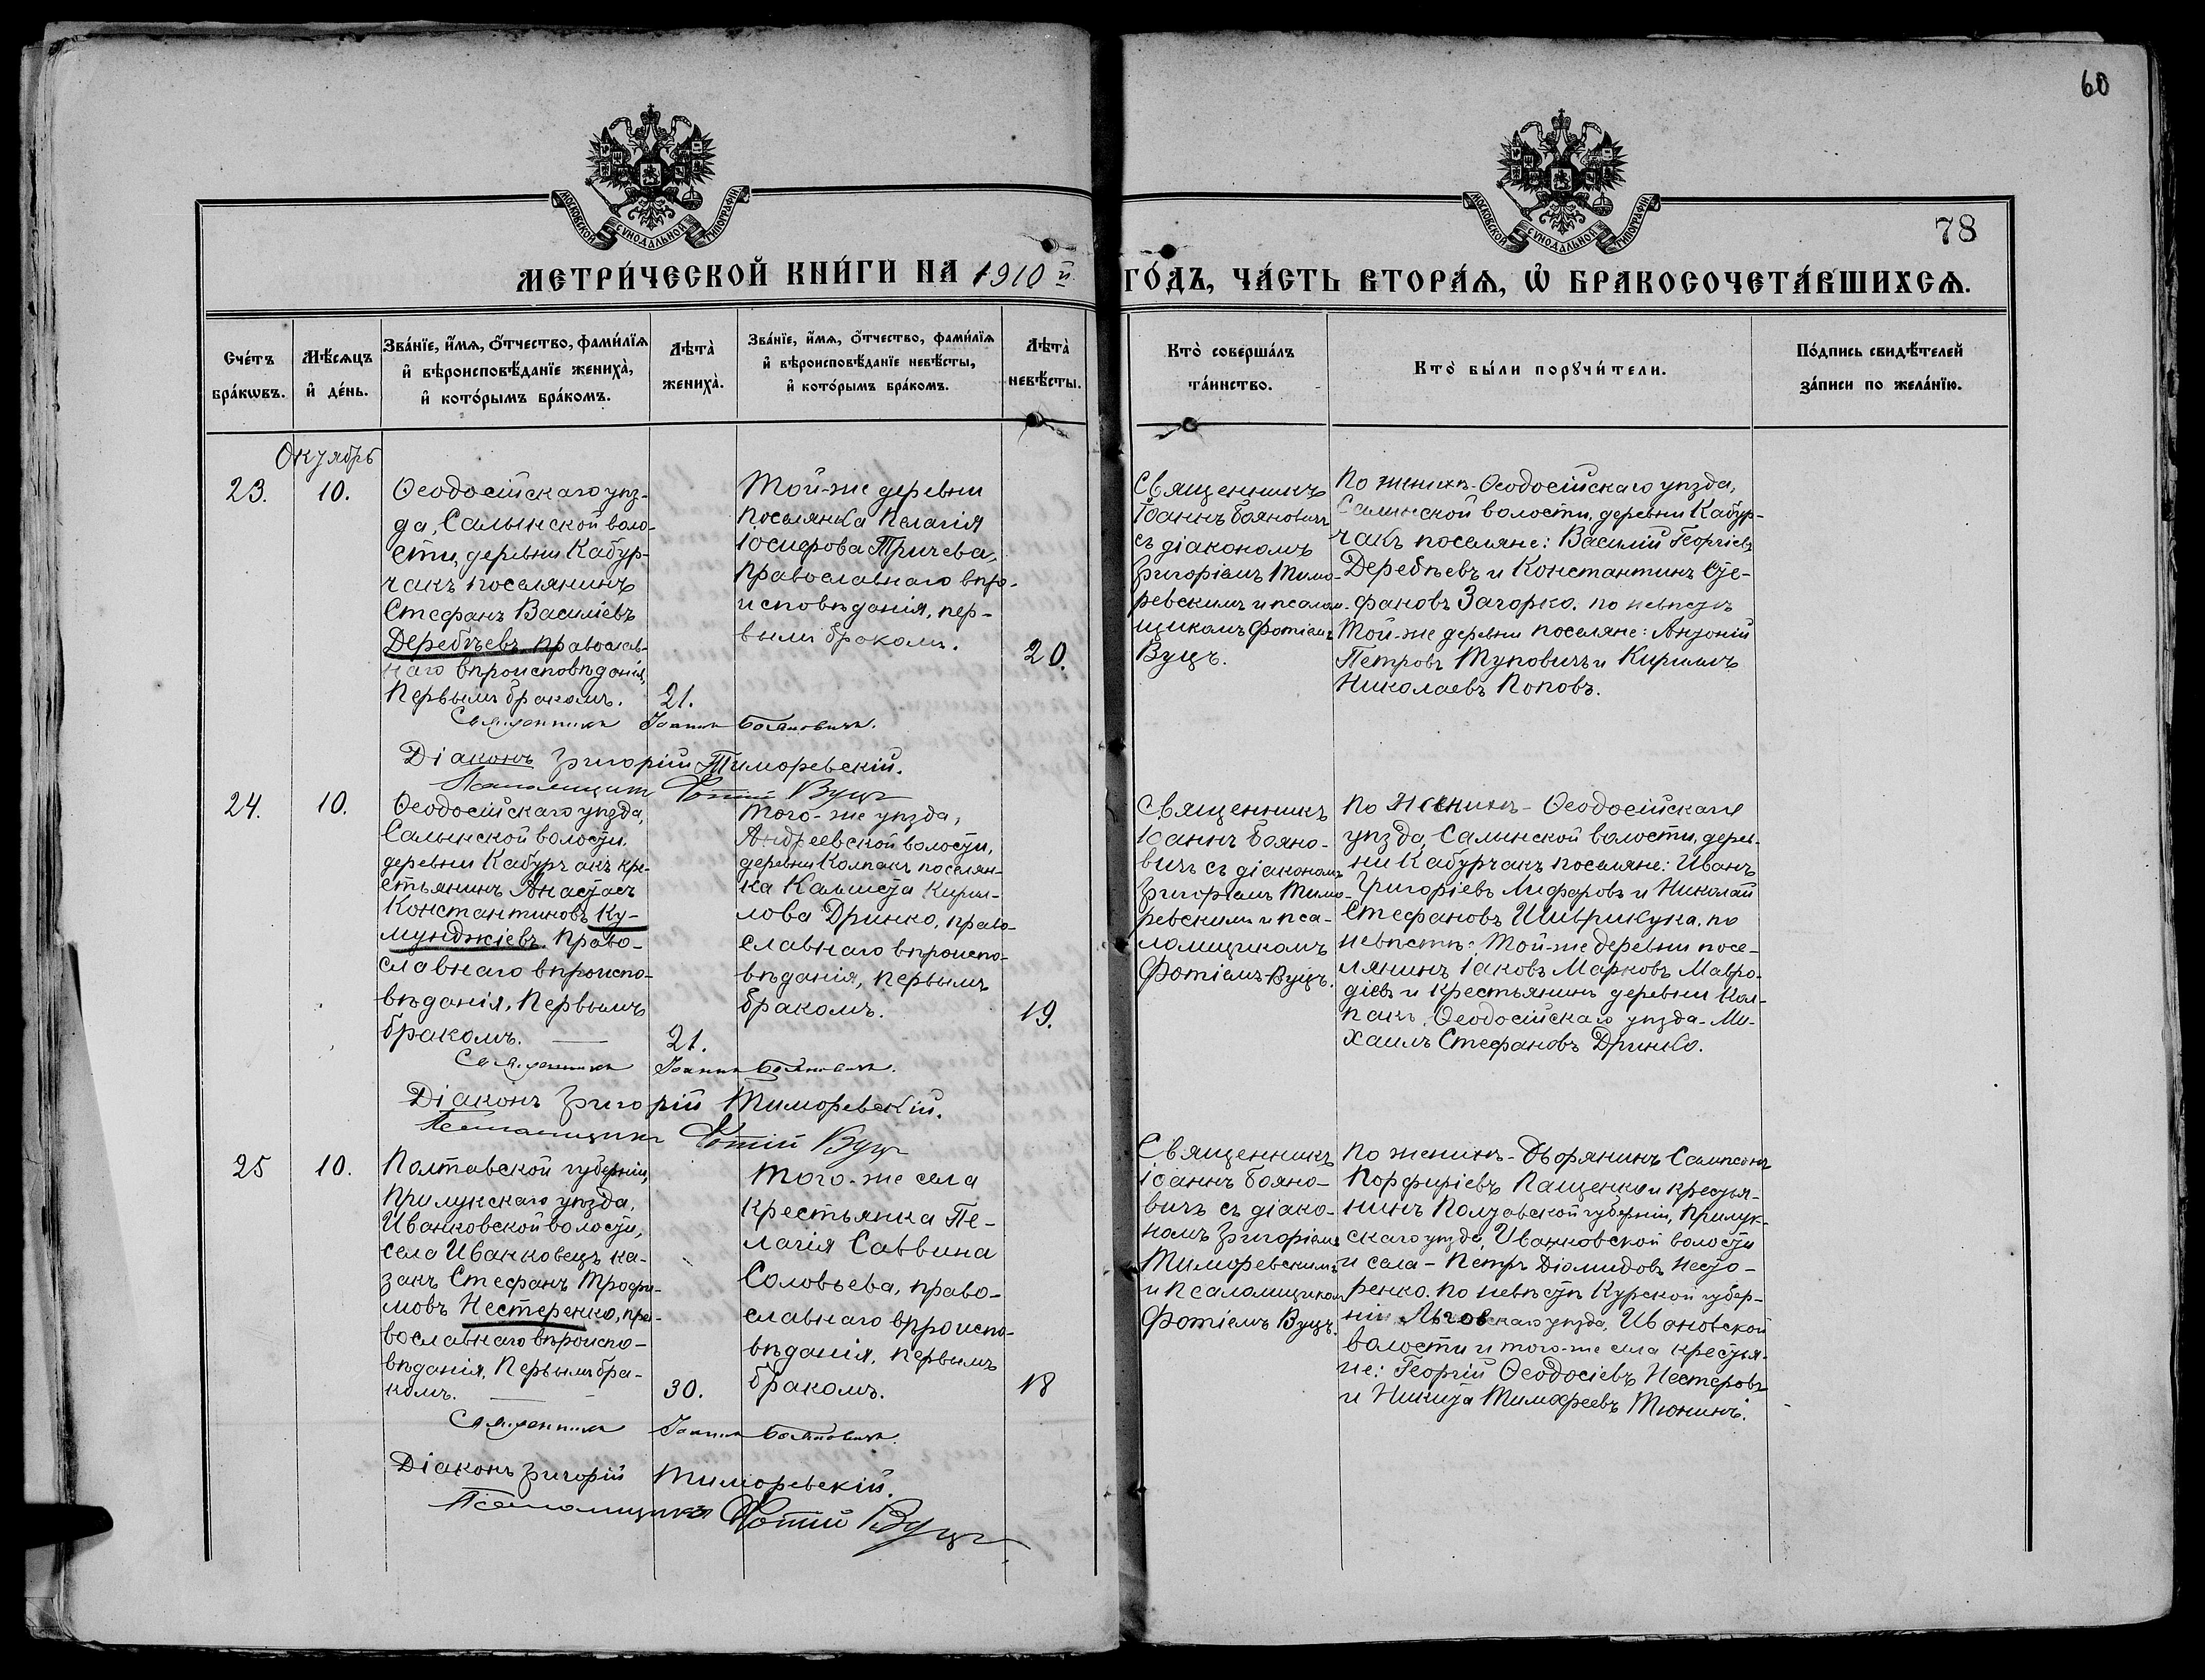 60
МОСКОВСКОЙ СѴНОДАЛЬНОЙ ТИПОГРАФІИ
МОСКОВСКОЙ СѴНОДАЛЬНОЙ ТИПОГРАФІИ
78
МЕТРИ́ЧЕСКОЙ КНИ́ГИ НА 1910 й ГО́ДЪ, ЧА́СТЬ ВТОРА́Ѧ, Ѽ БРАКОСОЧЕТА́ВШИХСѦ.
Сче́тъ
бра́кѡвъ.
Мѣ́сѧцъ
и҆ де́нь.
Зва́нїе, и҆́мѧ, ѻ҆́тчество, фами́лїѧ
и҆ вѣроисповѣ́данїе жениха̀,
и҆ кото́рымъ бра́комъ.
Лѣта̀
жениха̀.
Зва́нїе, и҆́мѧ, ѻ҆́тчество, фами́лїѧ
и҆ вѣроисповѣ́данїе невѣ́сты,
и҆ кото́рымъ бра́комъ.
Лѣта̀
невѣ́сты.
Кто̀ соверша́лъ
та́инство.
Кто̀ бы́ли порꙋчи́тели.
По́дпись свидѣ́телей
за́писи по жела́нїю.
Октябрь
23.
10.
Ѳеодосійскаго уѣз-
да, Салынской воло-
сти, деревни Кабур-
чакъ поселянинъ
Стефанъ Василіевъ
Деребѣевъ, православ-
наго вѣроисповѣданія,
первымъ бракомъ.
21.
Той-же деревни
поселянка Пелагія
Іосифова Тричева,
православнаго вѣро-
исповѣданія, пер-
вымъ бракомъ.
20.
Священникъ
Іоаннъ Бояновичъ
съ діакономъ
Григоріемъ Тимо-
ревскимъ и псалом-
щикомъ Фотіемъ
Вуцъ.
По женихѣ-Ѳеодосійскаго уѣзда,
Салынской волости, деревни Кабур-
чакъ поселяне: Василій Георгіевъ
Деребѣевъ и Константинъ Сте-
фановъ Загорко. по невѣстѣ
Той-же деревни поселяне: Антоній
Петровъ Туповичъ и Кириллъ
Николаевъ Поповъ.
Священникъ Іоаннъ Бояновичъ.
Діаконъ Григорій Тиморевскій.
Псаломщикъ Фотій Вуцъ
24.
10.
Ѳеодосійскаго уѣзда,
Салынской волости,
деревни Кабурчакъ кре-
стьянинъ Анастасъ
Константиновъ Ку-
мунджіевъ, право-
славнаго вѣроиспо-
вѣданія, первымъ
бракомъ.
21.
Того-же уѣзда,
Андреевской волости,
деревни Колпакъ поселян-
ка Калиста Кирил-
лова Дринко, право-
славнаго вѣроиспо-
вѣданія, первымъ
бракомъ.
19.
Священникъ
Іоаннъ Бояно-
вичъ съ діакономъ
Григоріемъ Тимо-
ревскимъ и пса-
ломщикомъ
Фотіемъ Вуцъ.
По женихѣ- Ѳеодосійскаго
уѣзда, Салынской волости, дерев-
ни Кабурчакъ поселяне: Иванъ
Григоріевъ Лифаровъ и Николай
Стефановъ Шиврикука. по
невѣстѣ: Той-же деревни посе-
лянинъ Іаковъ Марковъ Мавро-
діевъ и крестьянинъ деревни Кол-
пакъ, Ѳеодосійскаго уѣзда-Ми-
хаилъ Стефановъ Дринко.
Священникъ Іоаннъ Бояновичъ.
Діаконъ Григорій Тиморевскій.
Псаломщикъ Фотій Вуцъ
25
10.
Полтавской губерніи,
Прилукскаго уѣзда,
Иванковской волости,
села Иванковецъ ка-
закъ Стефанъ Трофи-
мовъ Нестеренко, пра-
вославнаго вѣроиспо-
вѣданія, первымъ бра-
комъ.
30.
Того-же села
крестьянка Пе-
лагія Саввина
Соловьева, право-
славнаго вѣроиспо-
вѣданія, первымъ
бракомъ.
18
Священникъ
Іоаннъ Бояно-
вичъ съ діако-
номъ Григоріемъ
Тиморевскимъ
и псаломщикомъ
Фотіемъ Вуцъ.
По женихѣ- Дворянинъ Сампсонъ
Порфиріевъ Пащенко и крестья-
нинъ Полтавской губерніи, Прилук-
скаго уѣзда, Иванковской волости
и села- Петръ Діомидовъ Несто-
ренко. По невѣстѣ Курской губер-
ніи, Льговскаго уѣзда, Ивановской
волости и того-же села крестья-
не: Георгій Ѳеодосіевъ Нестеровъ
и Никита Тимофеевъ Тюнинъ.
Священникъ Іоаннъ Бояновичъ.
Діаконъ Григорій Тиморевскій.
Псаломщикъ Фотій Вуцъ